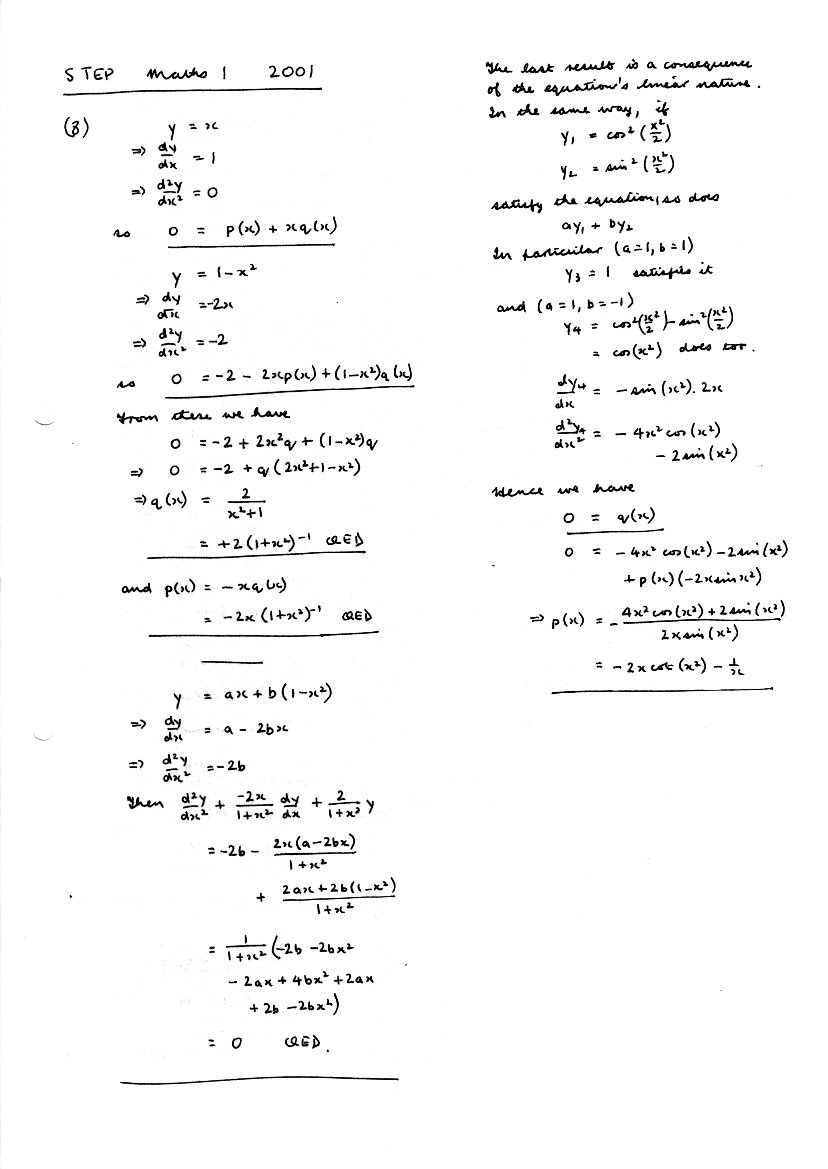 STEP Maths 1 2001
(8) y = x
⇒ dy/dx = 1
⇒ d²y/dx² = 0
so 0 = p(x) + xq(x)
y = 1-x²
⇒ dy/dx = -2x
⇒ d²y/dx² = -2
so 0 = -2 - 2xp(x) + (1-x²)q(x)
From these we have
0 = -2 + 2x²q + (1-x²)q
⇒ 0 = -2 + q(2x²+1-x²)
⇒ q(x) = 2/(x²+1)
= +2(1+x²)⁻¹ QED
and p(x) = -xq(x)
= -2x(1+x²)⁻¹ QED
y = ax + b(1-x²)
⇒ dy/dx = a - 2bx
⇒ d²y/dx² = -2b
Then d²y/dx² + -2x/(1+x²) dy/dx + 2/(1+x²) y
= -2b - 2x(a-2bx)/(1+x²)
+ (2ax+2b(1-x²))/(1+x²)
= 1/(1+x²) (-2b - 2bx²
- 2ax + 4bx² + 2ax
+ 2b - 2bx²)
= 0 QED.
The last result is a consequence
of the equation's linear nature.
In the same way, if
y₁ = cos²(x²/2)
y₂ = sin²(x²/2)
satisfy the equation, so does
ay₁ + by₂
In particular (a=1, b=1)
y₃ = 1 satisfies it
and (a=1, b=-1)
y₄ = cos²(x²/2) - sin²(x²/2)
= cos(x²) does too.
dy₄/dx = -sin(x²).2x
d²y₄/dx² = -4x² cos(x²)
- 2sin(x²)
Hence we have
0 = q(x)
0 = -4x² cos(x²) - 2sin(x²)
+ p(x)(-2x sin x²)
⇒ p(x) = - (4x² cos(x²) + 2sin(x²))/(2x sin(x²))
= -2x cot(x²) - 1/x